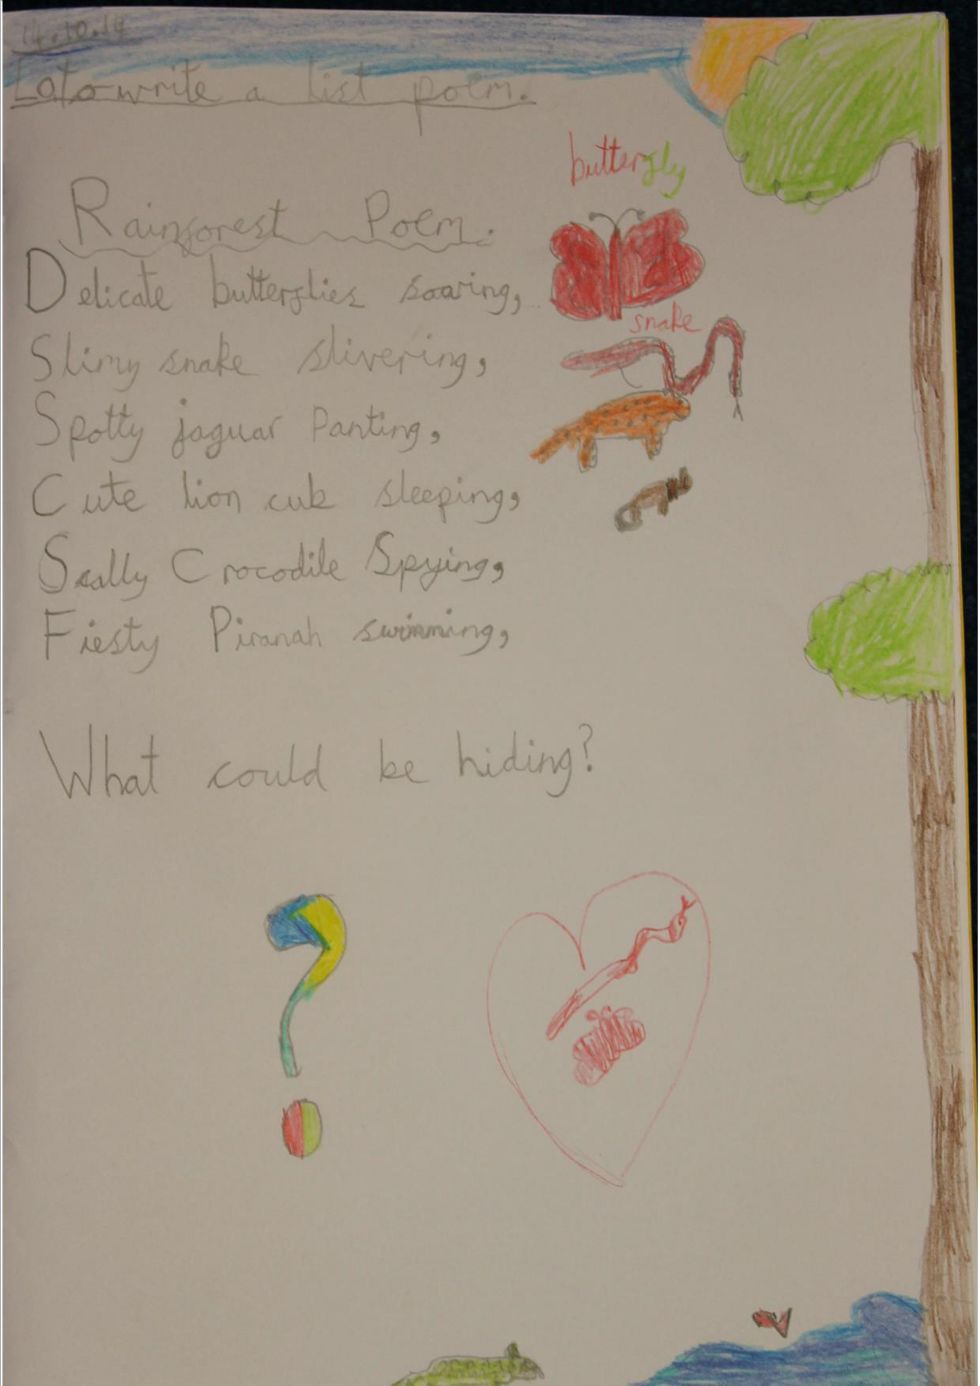 14.10.14
Lo to write a list poem.
butterfly
Rainforest Poem.
Delicate butterflies soaring,
snake
Slimy snake slivering,
Spotty jaguar Panting,
Cute lion cub sleeping,
Scally Crocodile Spying,
Fiesty Piranah swimming,
What could be hiding?
?